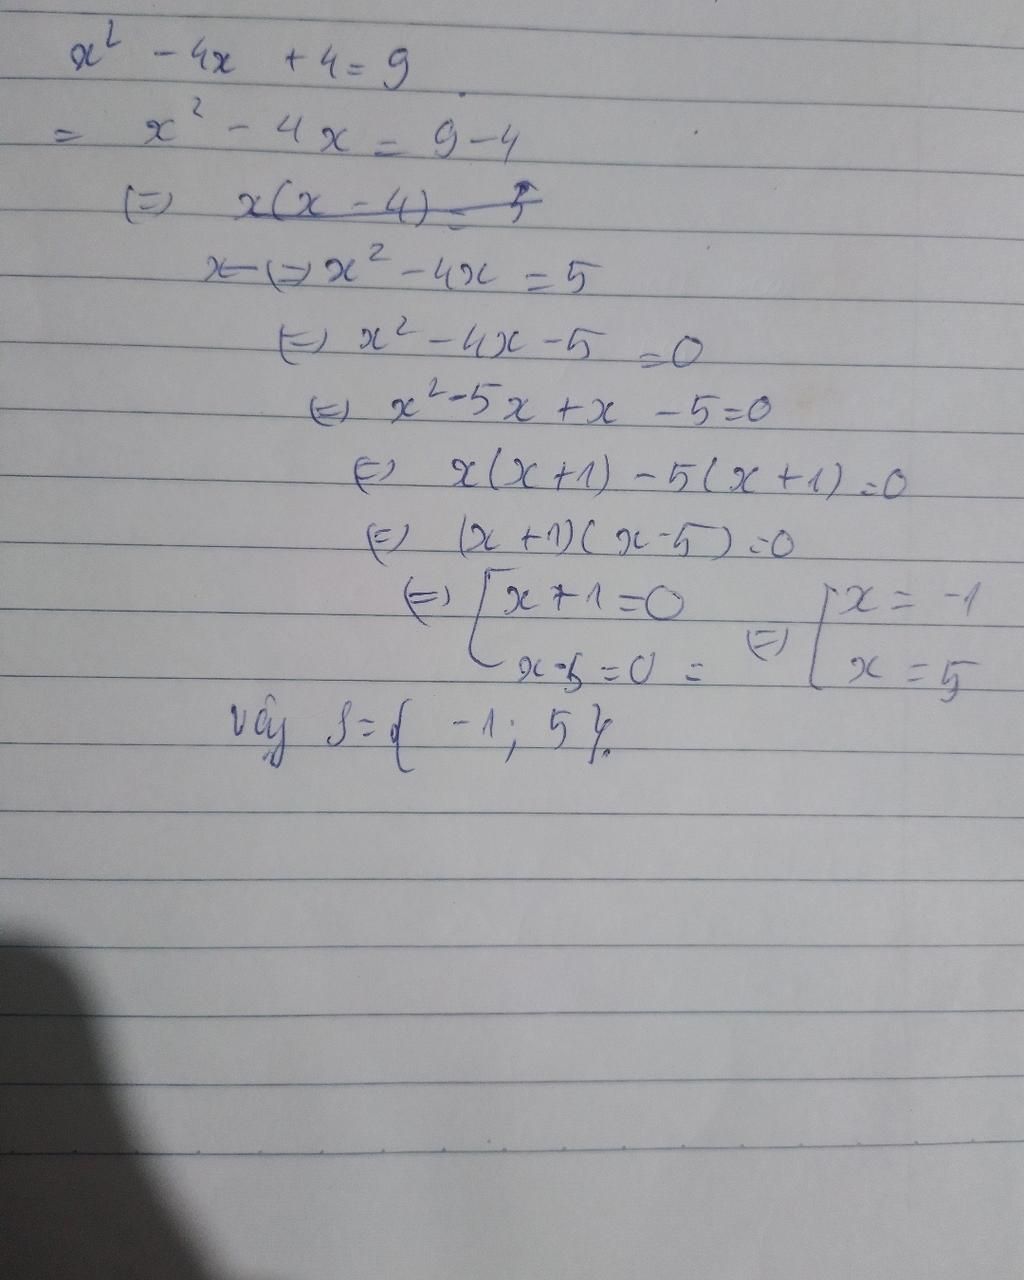 x² - 4x + 4 = 9
= x² - 4x = 9 - 4
(=) x(x - 4) = 5
x (=) x² - 4x = 5
(=) x² - 4x - 5 = 0
(=) x² - 5x + x - 5 = 0
(=) x(x + 1) - 5(x + 1) = 0
(=) (x + 1)(x - 5) = 0
(=) [ x + 1 = 0 (=) [ x = -1
x - 5 = 0 = x = 5
Vậy S = { -1; 5 }.